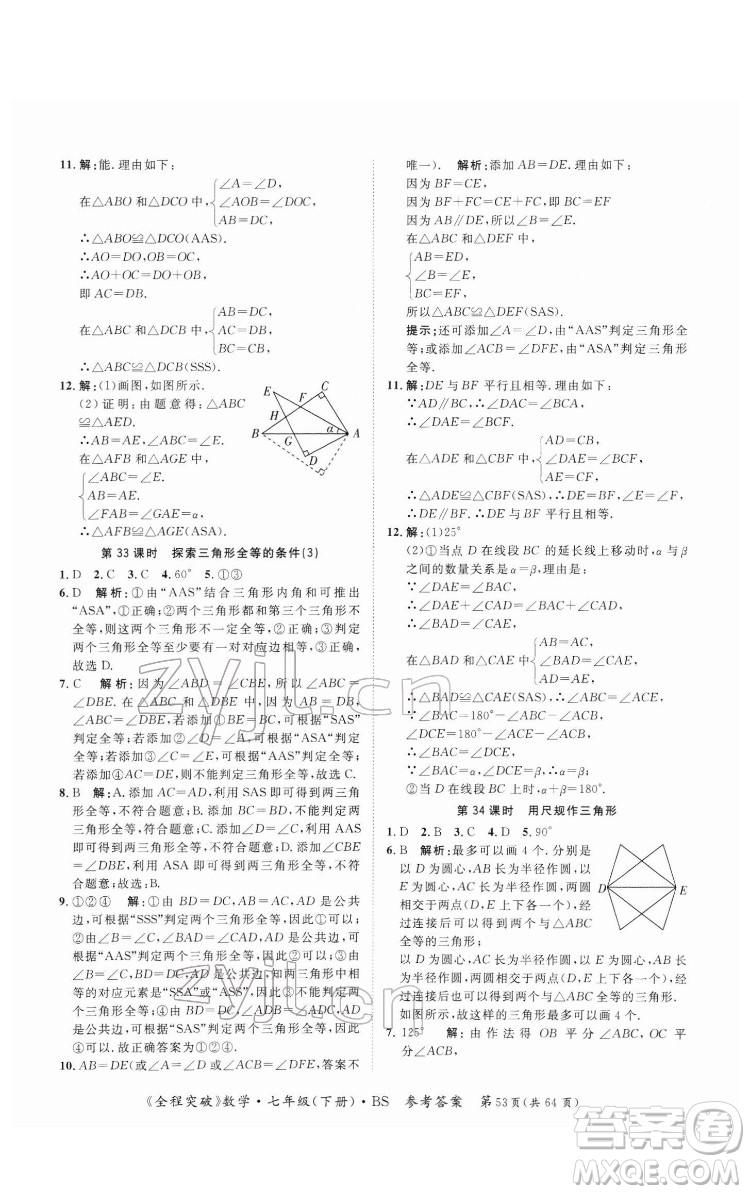 11. 解:能.理由如下:
在△ABO和△DCO中,{∠A=∠D,
∠AOB=∠DOC,
AB=DC,
∴△ABO≌△DCO(AAS).
∴AO=DO,OB=OC.
∴AO+OC=DO+OB.
即AC=DB.
在△ABC和△DCB中,{AB=DC,
AC=DB,
BC=CB,
∴△ABC≌△DCB(SSS).
12. 解:(1)画图,如图所示.
(2)证明:由题意得:△ABC
≌△AED.
∴AB=AE,∠ABC=∠E.
在△AFB和△AGE中,
{∠ABC=∠E,
AB=AE,
∠FAE=∠GAE=α,
∴△AFB≌△AGE(ASA).
E C F H B G α A D
第33课时 探索三角形全等的条件(3)
1. D 2. C 3. C 4. 60° 5. ①③
6. D 解析:①由“AAS”结合三角形内角和可推出
“ASA”,①正确;②两个三角形都和第三个三角形全
等,则这两个三角形也必然全等,②正确;③判定
两个三角形全等至少要有一对对应边相等,③正确,
故选D.
7. C 解析:因为∠ABD=∠CBE,所以∠ABC=
∠DBE.在△ABC和△DBE中,因为AB=DB,
∠ABC=∠DBE,若添加①BC=BE,可根据“SAS”
判定两三角形全等;若添加②∠D=∠A,可根据
“ASA”判定两三角形全等;若添加③∠C=∠E,可
根据“AAS”判定两三角形全等;
若添加④AC=DE,则不能判定两三角形全等,故选C.
8. B 解:A.添加BC=BE,可根据SAS判定两三角
形全等,不符合题意;B.添加AC=DE,SSA不能
判定两三角形全等,符合题意;C.添加∠A=∠D,
可利用ASA得出两三角形全等,不符合题意;D.添
加∠ACB=∠DEB,可利用AAS得出两三角形全
等,不符合题意;故选:B.
9. ①②④ 解:①AB=DC,AC=DB,AD是公共
边,可根据“SSS”判定两个三角形全等,①可以;
②AB=DC,∠BAD=∠CDA,AD是公共边,可根
据“SAS”判定两个三角形全等,②可以;③∠B=
∠C,AC=DB,AD是公共边,两三角形全等的条件
的对应元素是“SSA”或“ASS”,③不可以;
④由OB=OC,OA=OD,∠AOB=∠DOC,可根
据“SAS”判定两个三角形全等,
④可以.故正确答案为①②④.
10. AB=DE或∠A=∠D或∠ACB=∠DFE,答案不
唯一). 解析:添加AB=DE.
因为BF=CE,
因为BF+FC=CE+FC,即BC=EF
因为AB∥DE,所以∠B=∠E.
在△ABC和△DEF中,
{AB=ED,
∠B=∠E,
BC=EF,
所以△ABC≌△DEF(SAS).
提示:还可添加∠A=∠D,由“AAS”判定三角形全
等;或添加∠ACB=∠DFE,由“ASA”判定三角形
全等.
11. 解:DE与BF平行且相等.
∵AD∥BC,∴∠DAC=∠BCA,
∴∠DAE=∠BCF.
在△ADE和△CBF中,{DA=CB,
∠DAE=∠BCF,
AE=CF,
∴△ADE≌△CBF(SAS).
∴DE=BF,∠E=∠F.
∴DE∥BF.∴DE与BF平行且相等.
12. 解:(1)25°
(2)①当点D在线段BC的延长线上移动时,α与β
之间的数量关系是α=β,理由是:
∵∠DAE=∠BAC,
∴∠DAE+∠CAD=∠BAC+∠CAD,
∴∠BAD=∠CAE,
在△BAD和△CAE中,{AB=AC,
∠BAD=∠CAE,
AD=AE,
∴△BAD≌△CAE(SAS),∴∠B=∠ACE,
∵∠BAC=180°-∠B-∠ACB,
∠DCE=180°-∠ACB-∠ACE,
∴∠BAC=∠DCE,
∵∠BAC=α,∠DCE=β,∴α=β.
②当D在线段BC上时,α+β=180°.
第34课时 用尺规作三角形
1. D 2. B 3. C 4. D 5. 90°
6. B 解析:最多可以画4个.分别是
以D为圆心,AC长为半径作圆,以
E为圆心,BC长为半径作圆,两圆
相交于两点(D,E上下各一个),经
过连接后可得到两个与△ABC全
等的三角形;
以D为圆心,BC长为半径作圆,以E为圆心,AC长
为半径作圆,两圆相交于两点(D,E上下各一个),
经过连接后可得到两个与△ABC全等的三角形.
如图所示,故最多可以画4个.
D E
7. 125° 解:由作法得OB平分∠ABC,OC平
分∠ACB,
《全程突破》数学·七年级(下册)·BS 参考答案 第53页(共64页)
zyjl.cn
zyjl.cn
答案圈
MXQE.COM